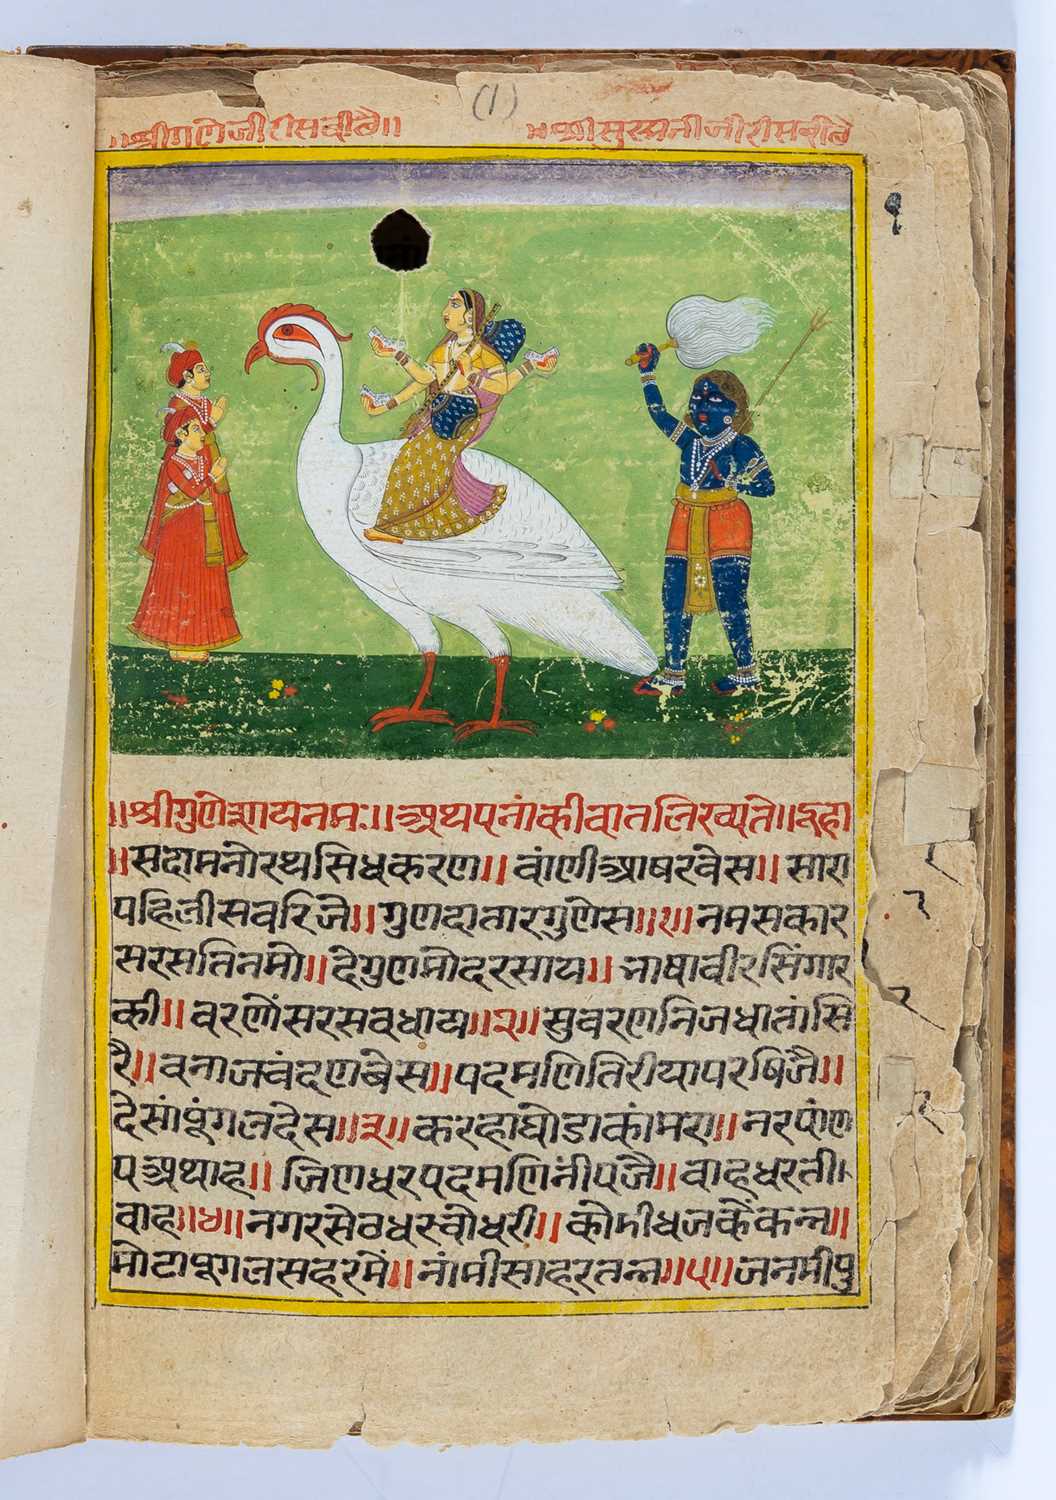 (1)
॥श्रीगणेजीरीसबीबै॥ ॥श्रीसुरसतीजीरीसबीबै
१
॥श्रीगुणेसायनमः॥अथपनांकीवातलिख्यते॥दूहा
॥सदामनोरथसिधकरण॥वांणीआषरवेस॥सारा
पहिलीसवरिजै॥गुणदातारगुणेस॥१॥नमसकार
सरसतिनमो॥देगुणमोदरसाय॥भाषावीरसिंगार
की॥वरणेंसरसवधाय॥२॥सुवरणनिजधातांसि
रै॥वनाजवंदणबेस॥पदमणितिरीयापरषिजै॥
देसांपूंगलदेस॥३॥करहाघोडाकांमरा॥नरपांण
पअथाह॥जिणधरपदमणिनींपजै॥वाहधरती
वाह॥४॥नगरसेठधस्वौधरी॥कोमीधजकैंकन्न॥
मोटापूगलसहरमें॥नांमीसाहरतन्न॥५॥जनमीपु